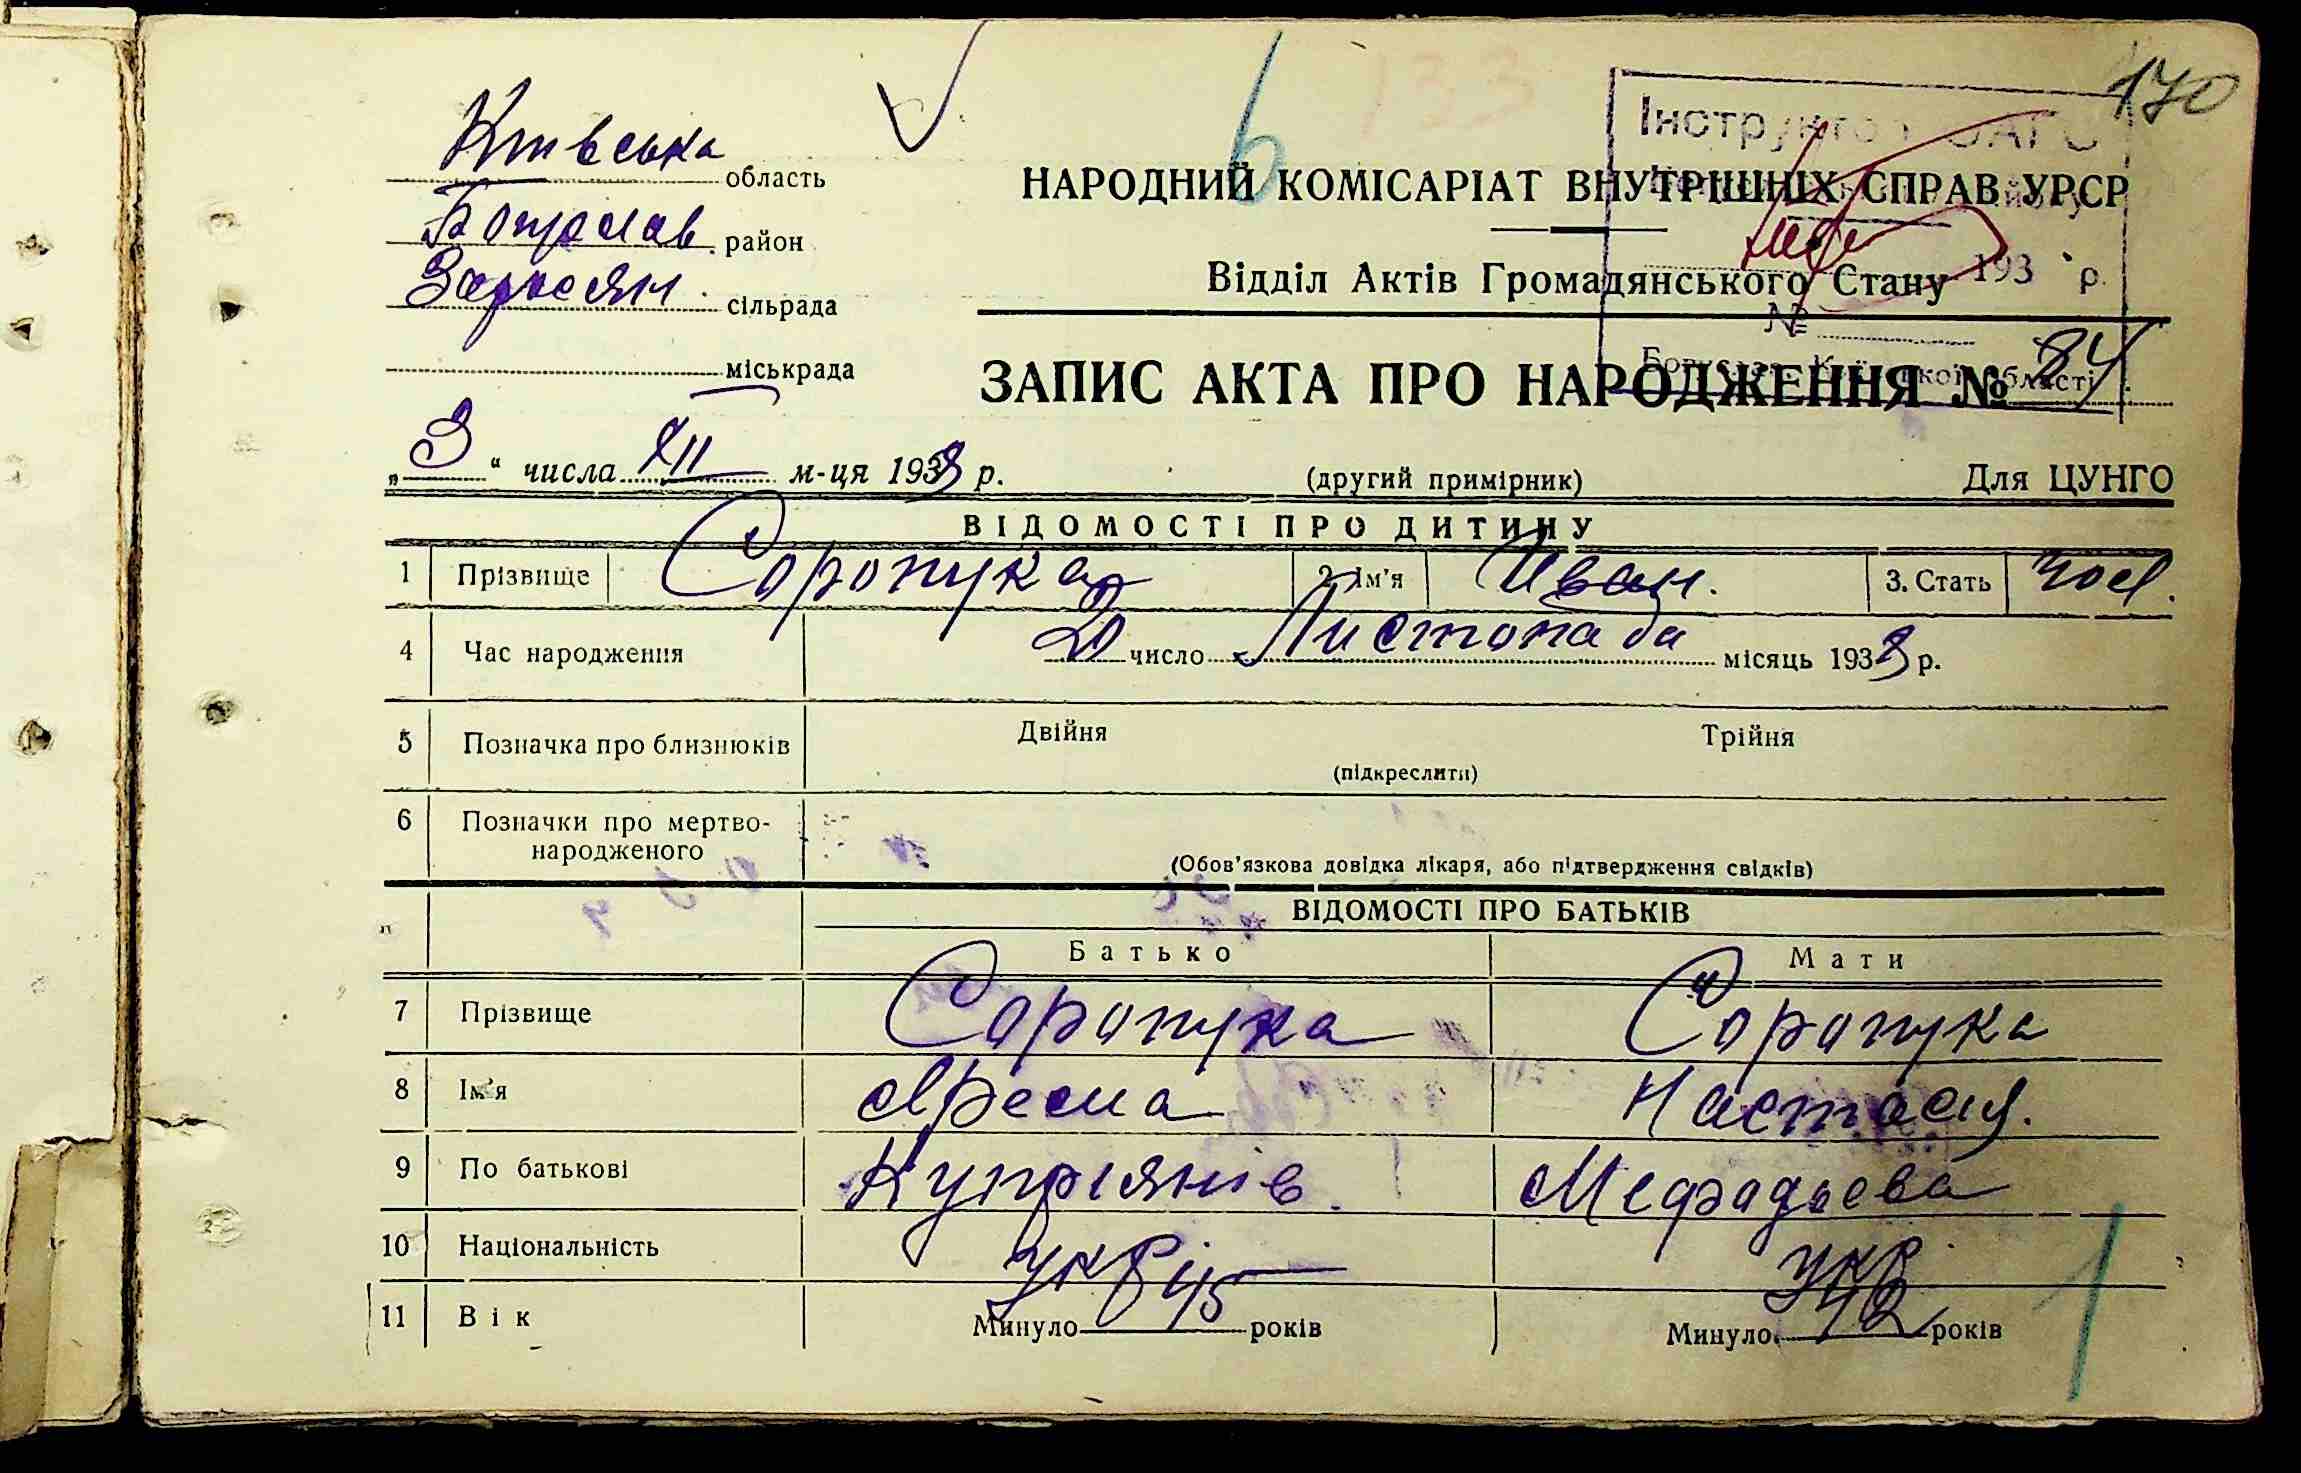 170
133
6
Київська область
Богуслав. район
Заросян. сільрада
міськрада
НАРОДНИЙ КОМІСАРІАТ ВНУТРІШНІХ СПРАВ УРСР
Відділ Актів Громадянського Стану
Інструктор ЗАГС
193 р.
№
Богуслав. Київської області
ЗАПИС АКТА ПРО НАРОДЖЕННЯ № 84
„3“ числа XII м-ця 1933 р.
(другий примірник)
Для ЦУНГО
ВІДОМОСТІ ПРО ДИТИНУ
1 Прізвище Соропука 2. Ім'я Иван. 3. Стать чол.
4 Час народження 20 число Листопада місяць 1933 р.
5 Позначка про близнюків Двійня Трійня
(підкреслити)
6 Позначки про мертво-
народженого
(Обов'язкова довідка лікаря, або підтвердження свідків)
ВІДОМОСТІ ПРО БАТЬКІВ
Батько Мати
7 Прізвище Соропука Соропука
8 Ім'я Ярема Настасия.
9 По батькові Купріянів. Мефодьєва
10 Національність укр укр
11 Вік Минуло 45 років Минуло 42 років
1